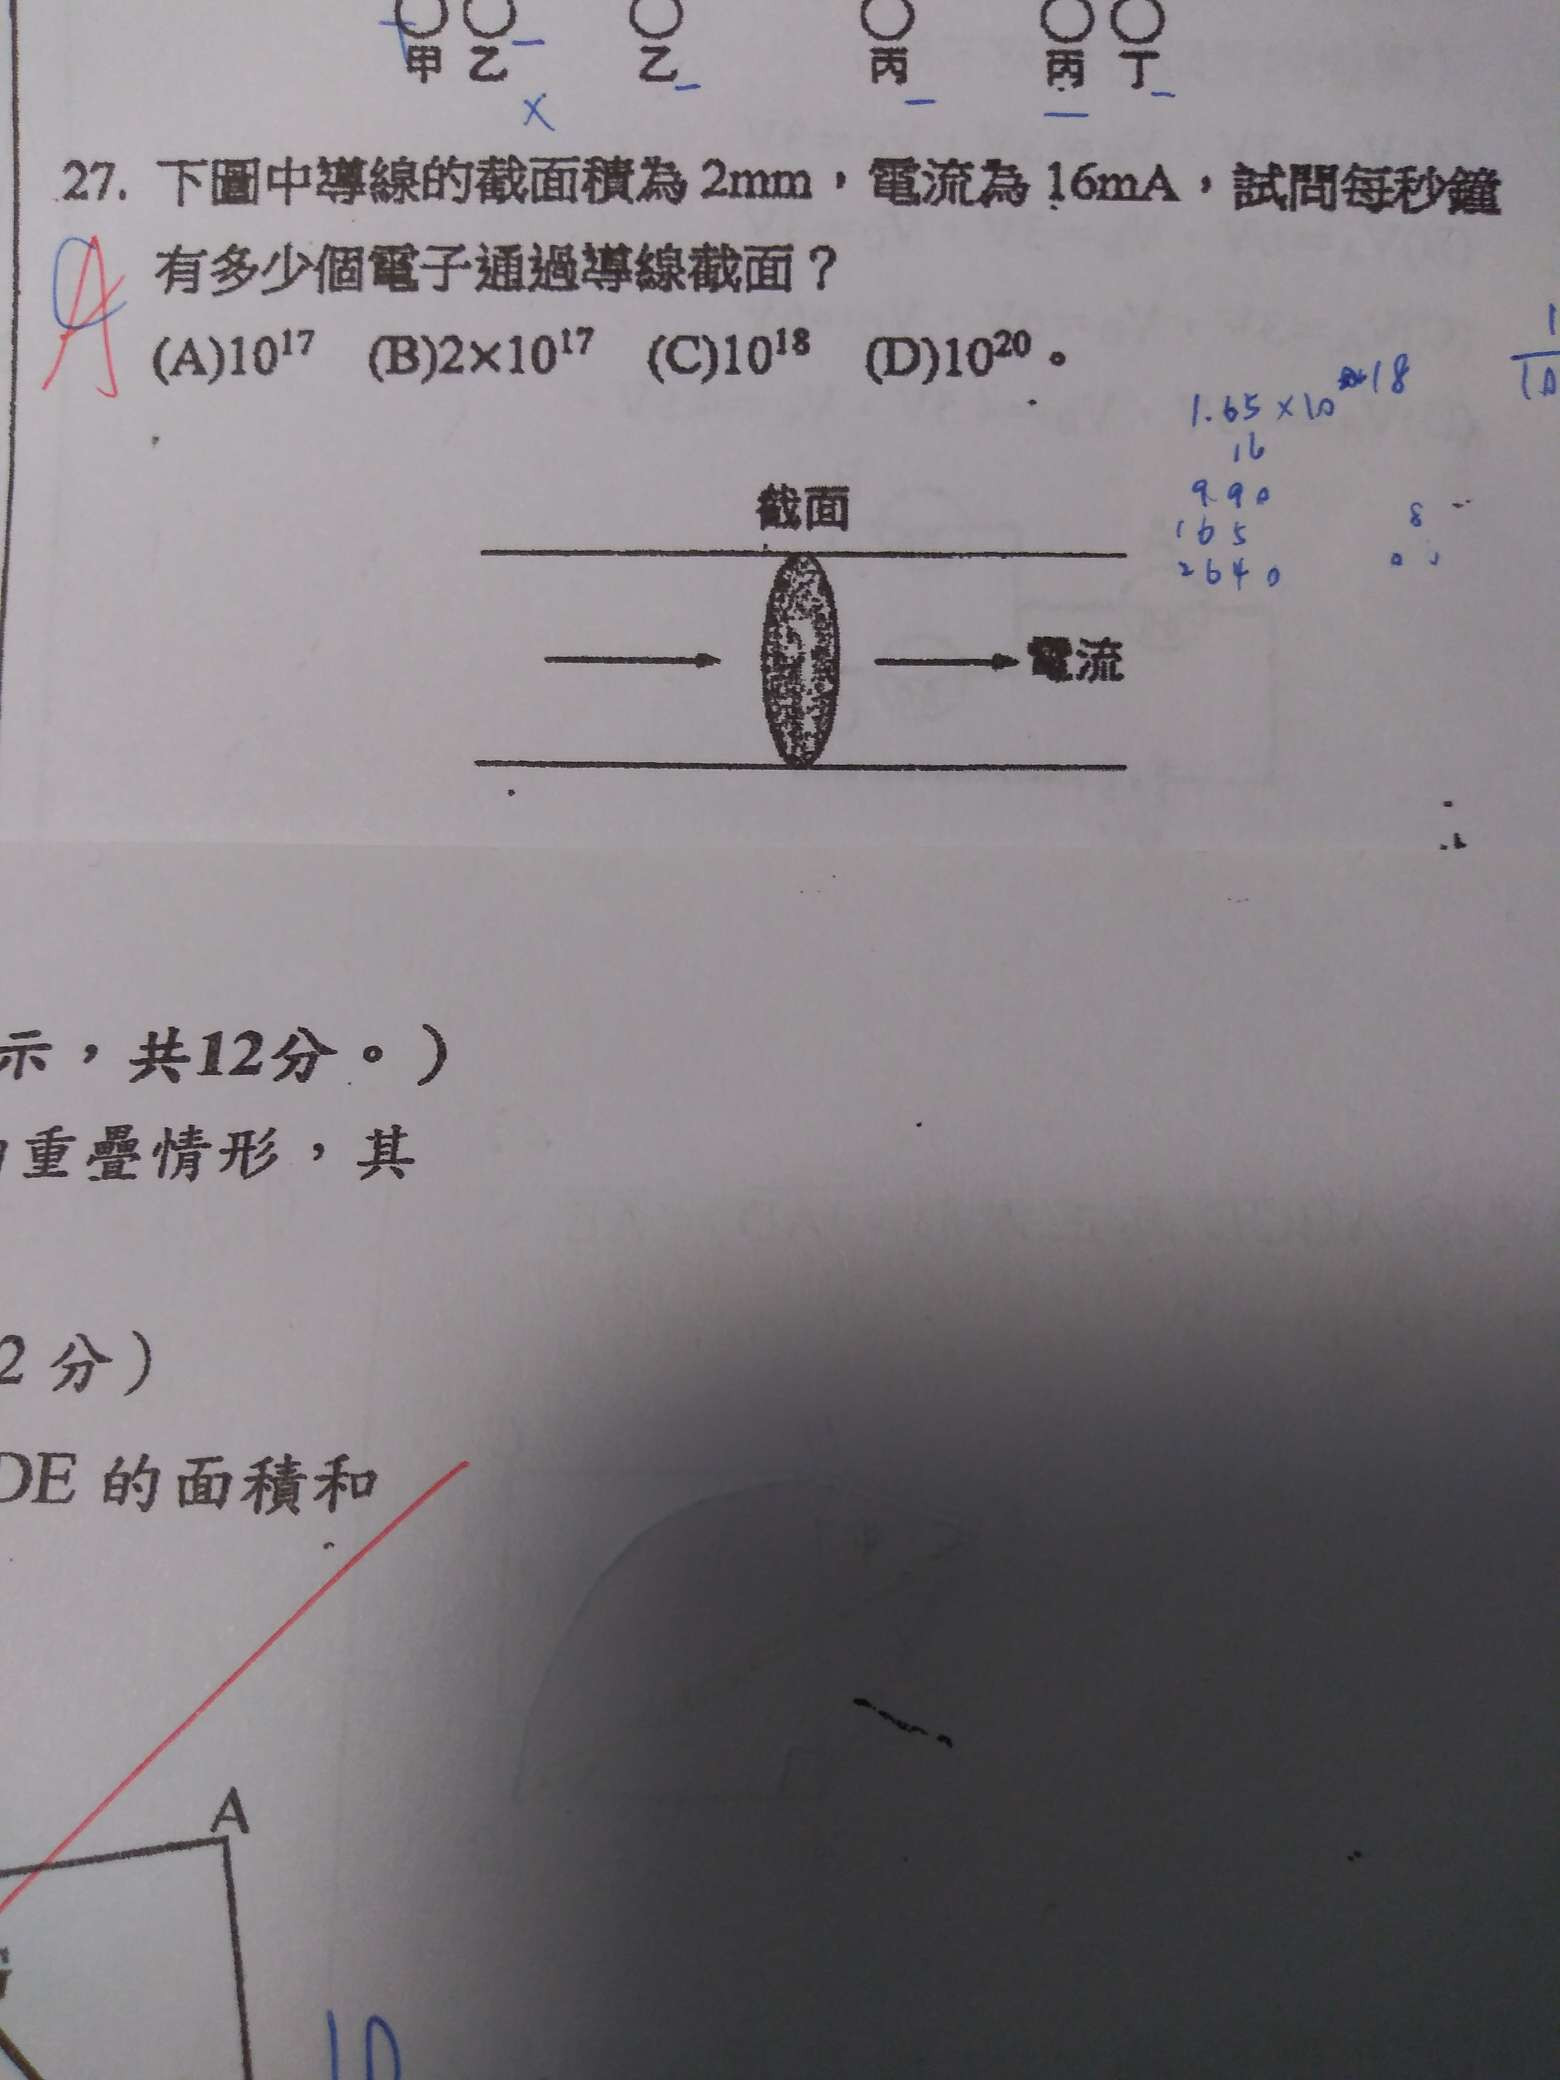 甲 乙 － 乙 － 丙 － 丙 － 丁 －
×
27. 下圖中導線的截面積為 2mm，電流為 16mA，試問每秒鐘
有多少個電子通過導線截面？
A
(A)10¹⁷ (B)2×10¹⁷ (C)10¹⁸ (D)10²⁰。
1.65×10 18
16
990
165
2640
8
截面
電流
示，共12分。）
重疊情形，其
2 分）
DE 的面積和
A
10